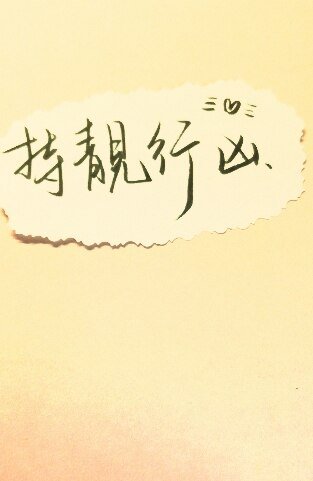 持靓行凶、